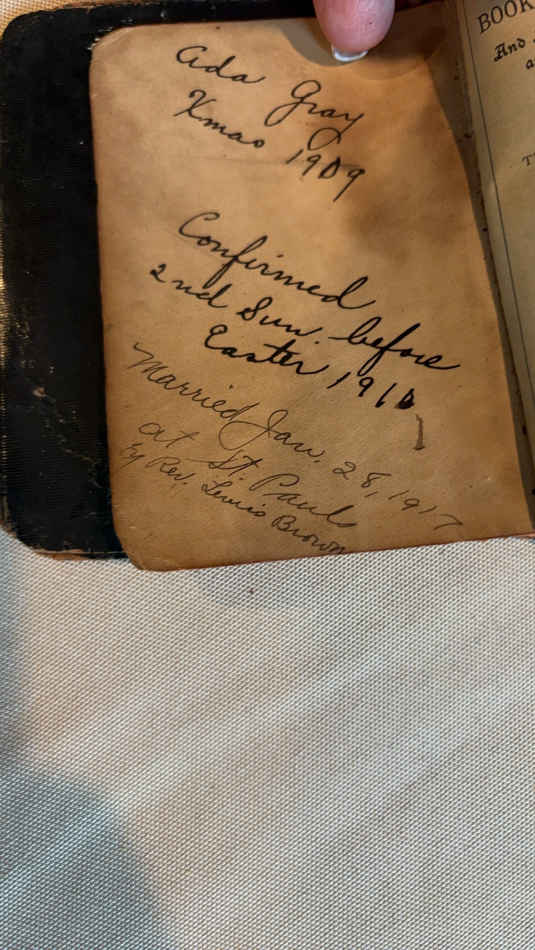 Ada Gray
Xmas 1909
Confirmed
2nd Sun. before
Easter, 1911
Married Jan. 28, 1917
at St. Pauls
By Rev. Lewis Brown
BOOK
And
a
T